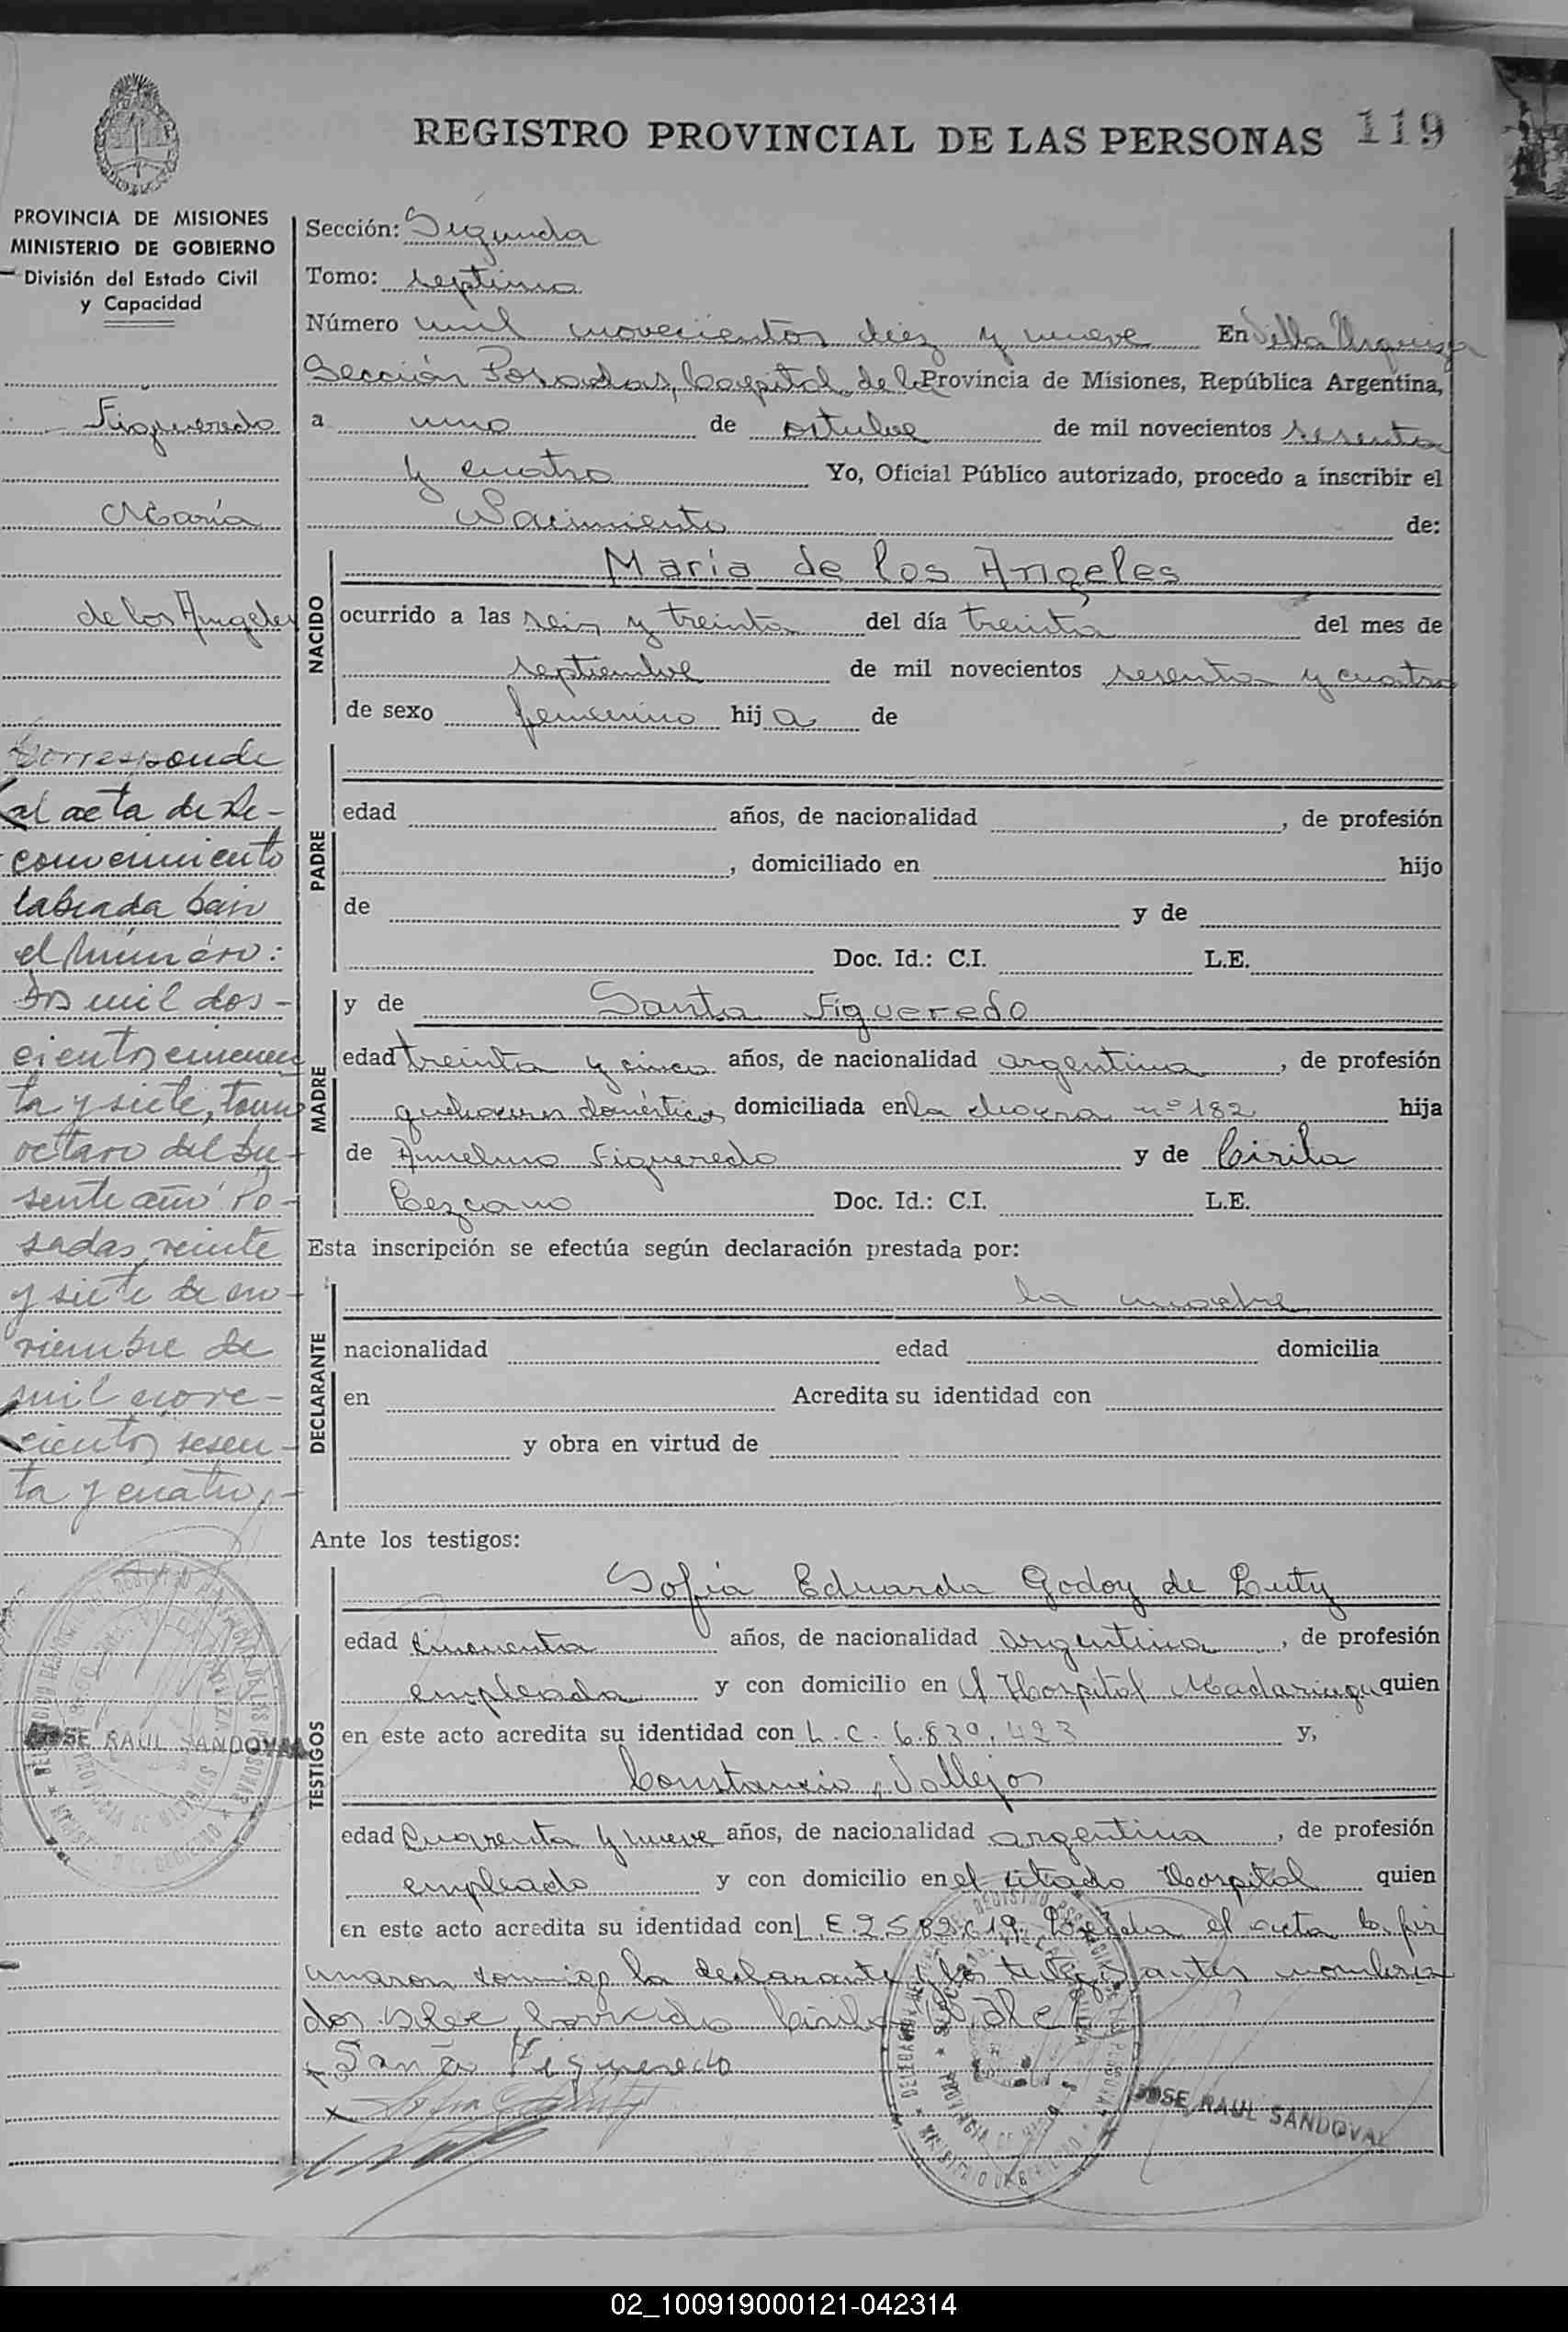 REGISTRO PROVINCIAL DE LAS PERSONAS 119
PROVINCIA DE MISIONES
MINISTERIO DE GOBIERNO
División del Estado Civil
y Capacidad
Figueredo
María
de los Angeles
Corresponde
al acta de Re-
conocimiento
labrada bajo
el número:
Dos mil dos-
cientos cincuen
ta y siete, tomo
octavo del pre-
sente año Po-
sadas, veinte
y siete de no-
viembre de
mil nove-
cientos sesen-
ta y cuatro.-
JOSE RAUL SANDOVAL
Sección: Segunda
Tomo: septimo
Número mil novecientos diez y nueve En Villa Urquiza
Sección Posadas, Capital de la Provincia de Misiones, República Argentina,
a uno de octubre de mil novecientos sesenta
y cuatro Yo, Oficial Público autorizado, procedo a inscribir el
Nacimiento de:
NACIDO
María de los Angeles
ocurrido a las seis y treinta del día treinta del mes de
septiembre de mil novecientos sesenta y cuatro
de sexo femenino hija de
PADRE
edad años, de nacionalidad , de profesión
, domiciliado en hijo
de y de
Doc. Id.: C.I. L.E.
MADRE
y de Santa Figueredo
edad treinta y cinco años, de nacionalidad argentina, de profesión
quehaceres domésticos domiciliada en la chacra nº 182 hija
de Anselmo Figueredo y de Cirila
Lezcano Doc. Id.: C.I. L.E.
Esta inscripción se efectúa según declaración prestada por:
DECLARANTE
la madre
nacionalidad edad domicilia
en Acredita su identidad con
y obra en virtud de
Ante los testigos:
TESTIGOS
Sofía Eduarda Godoy de Luty
edad cincuenta años, de nacionalidad argentina, de profesión
empleada y con domicilio en el Hospital Madariaga quien
en este acto acredita su identidad con L.C. 6.839.423 y,
Constancio Vallejos
edad cuarenta y nueve años, de nacionalidad argentina, de profesión
empleado y con domicilio en el citado Hospital quien
en este acto acredita su identidad con L.E. 2582619. Leída el acta la fir
maron conmigo la declarante y los testigos antes nombra
dos
Santa Figueredo
JOSE RAUL SANDOVAL
02_100919000121-042314